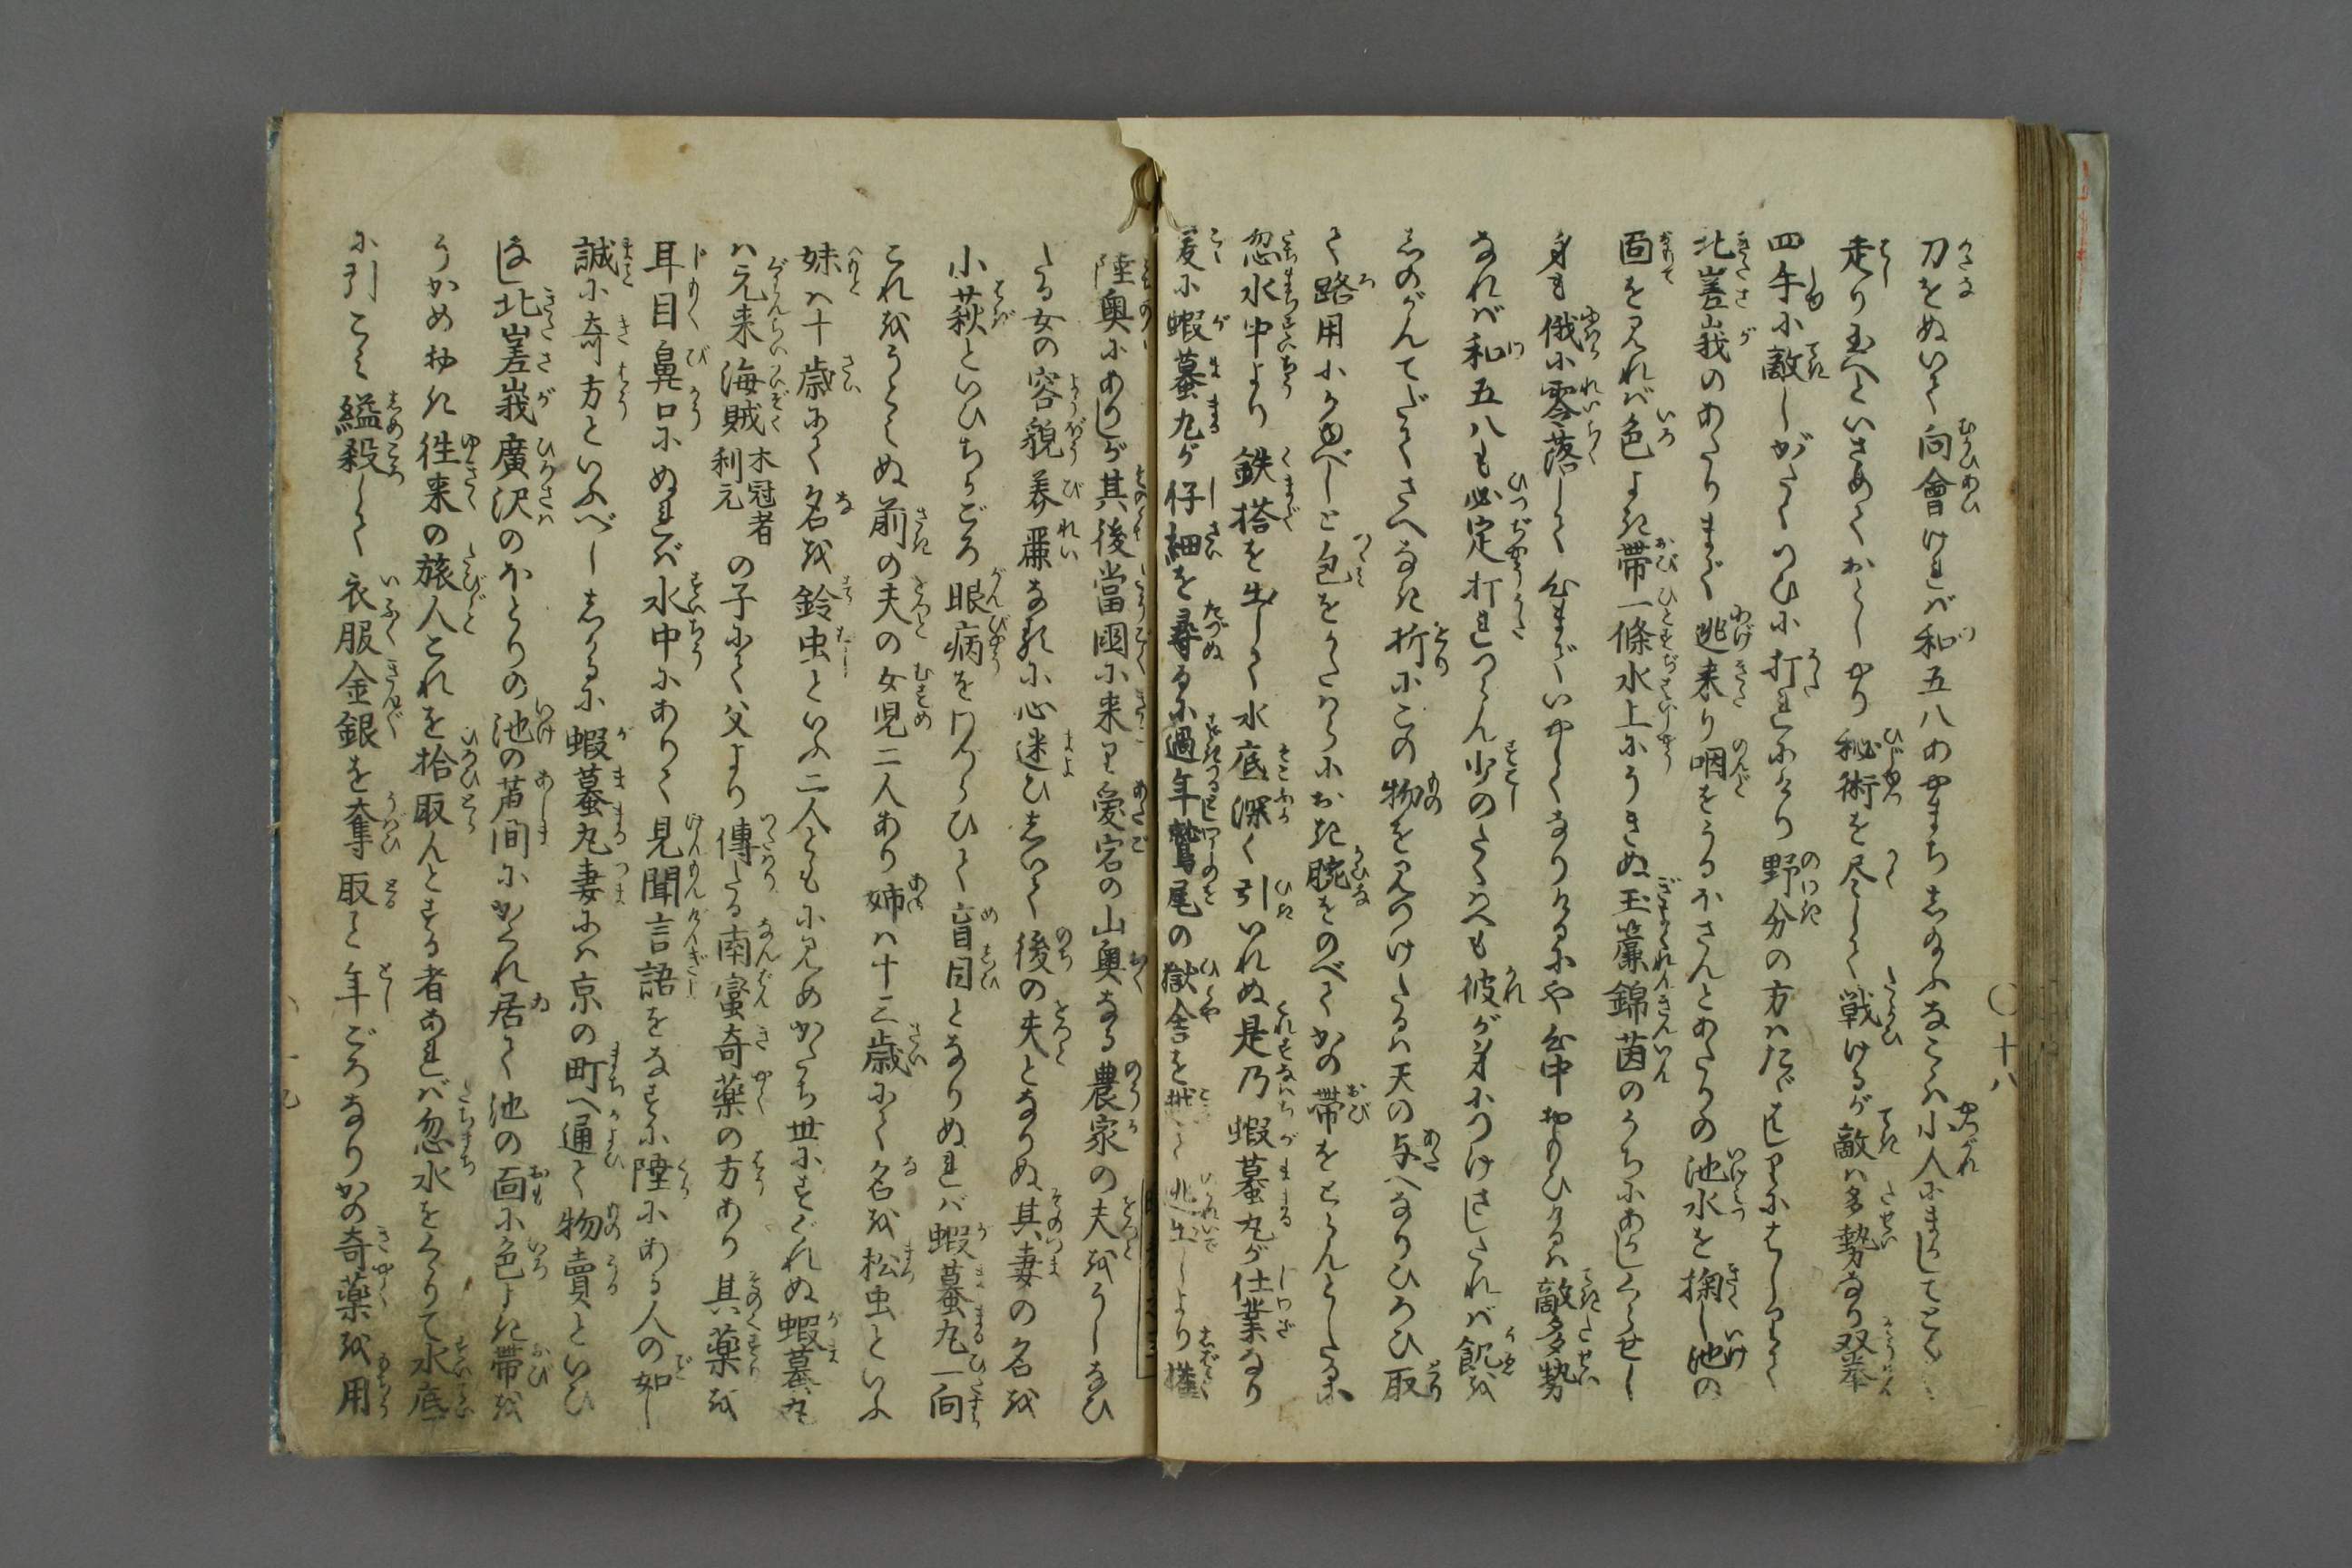 刀をぬいて向會ければ和五八あやまち志給ふなこゝハ小人にまかしてとく〳〵
走り玉へといさめておとしやり秘術を尽して戦けるが敵ハ多勢なり双拳
四手に敵しがたくつひに打れにけり野分の方ハたゞはしりにはしりて
北嵯峨のあたりまで逃来り咽をうるほさんとあたりの池水を掬し池の
面を見れば色よき帯一條水上にうきぬ玉簾錦茵のうちにあはしくらせし
身も俄に零落して心までいやしくなりけるにや心中おもひけるハ敵多勢
なれバ和五八も必定打れつらん少のたくハへも彼が身につけさしたれバ飢を
志のがんてだてさへなき折にこの物を見つけたるハ天の与へなりひろひ取
て路用にかゆべしと包をかたハらにおき腕をのべてかの帯をとらんとしたるに
忽水中より鉄搭を出して水底深く引いれぬ是乃蝦蟇丸が仕業なり
爰に蝦蟇丸が仔細を尋るに過年鷲尾の獄舎を越て逃出しより
陸奥にありしが其後當國に来り愛宕の山奥なる農家の夫をうしなひ
たる女の容貌美麗なるに心迷ひ志いて後の夫となりぬ其妻の名を
小萩といひちかごろ眼病をわづらひて盲目となりぬれバ蝦蟇丸一向
これをうとみぬ前の夫の女児二人あり姉ハ十三歳にて名を松虫といふ
妹ハ十歳にて名を鈴虫といふ二人ともに見めかたち世にすぐれぬ蝦蟇丸
ハ元来海賊木冠者利元の子にて父より傳たる南蛮奇薬の方あり其薬を
耳目鼻口にぬれバ水中にありて見聞言語をなすに陸にある人の如し
誠に奇方といふべし志かるに蝦蟇丸妻にハ京の町へ通て物賣といひ
なし北嵯峨廣沢のほとりの池の芦間にかくれ居て池の面に色よき帯を
うかめおき往来の旅人これを拾取んとする者あれバ忽水をくゞりて水底
に引こみ縊殺して衣服金銀を奪取こと年ごろなりかの奇薬を用
十八